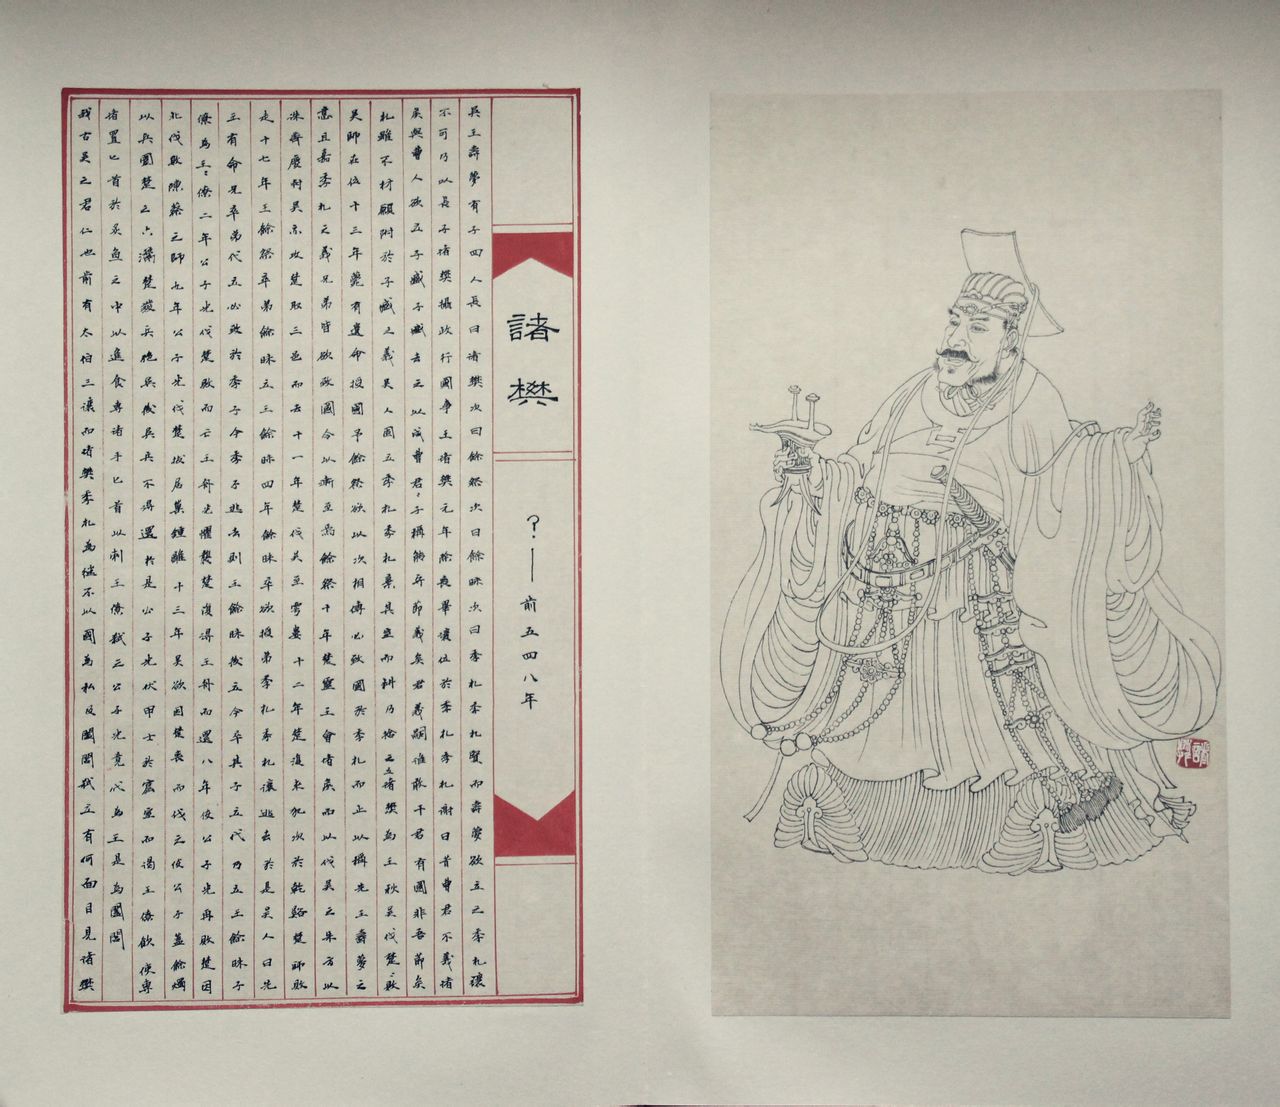 諸樊
?——前五四八年
吳王壽夢有子四人長曰诸樊次曰餘祭次曰餘眛次曰季札季札賢而壽夢欲立之季札讓
不可乃以長子诸樊攝政行國事王诸樊元年除喪畢讓位於季札季札谢曰昔曹君不義诸
侯與曹人欲立子臧子臧去之以成曹君〻子稱能守節義矣君義嗣谁敢干君有國非吾節矣
札雖不材願附於子臧之義吳人固立季札季札棄其室而耕乃捨之立诸樊為王秋吳伐楚〻敗
吳師在位十三年薨有遺命授國弟餘祭欲以次相傳必致國於季札而止以稱先王壽夢之
意且嘉季札之義兄弟皆欲致國令以漸至焉餘祭十年楚靈王會诸侯而以伐吳之朱方以
诛齊慶封吳亦攻楚取三邑而去十一年楚伐吳至雩婁十二年楚復來伐次於乾谿楚師敗
走十七年王餘祭卒弟餘眛立王餘眛四年餘眛卒欲授弟季札季札讓逃去於是吳人曰先
王有命兄卒弟代立必致於季子今季子逃去則王餘眛後立今卒其子立代乃立王餘眛子
僚為王〻僚二年公子光伐楚敗而亡王舟光懼襲楚復得王舟而還八年使公子光再敗楚因
北伐敗陳蔡之師九年公子光伐楚拔居巢鍾離十三年吳欲因楚喪而伐之使公子蓋餘燭
以兵圍楚之六灊楚發兵绝吳後吳兵不得還於是公子光伏甲士於窟室而谒王僚飲使專
诸置匕首於炙魚之中以進食專诸手匕首以刺王僚弑之公子光竟代為王是為闔閭
我古吳之君仁也前有太伯三讓而诸樊季札為繼不以國為私及闔閭弑立有何面目見诸樊